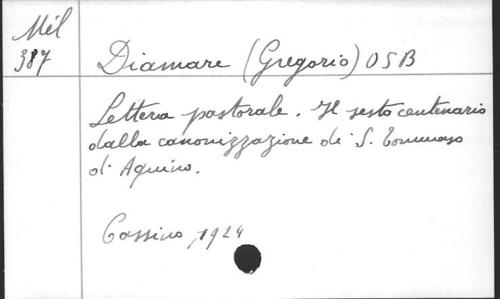 Mél
387
Diamare (Gregorio) OSB
Lettera pastorale. Il sesto centenario
dalla canonizzazione di S. Tommaso
d'Aquino.
Cassino, 1924